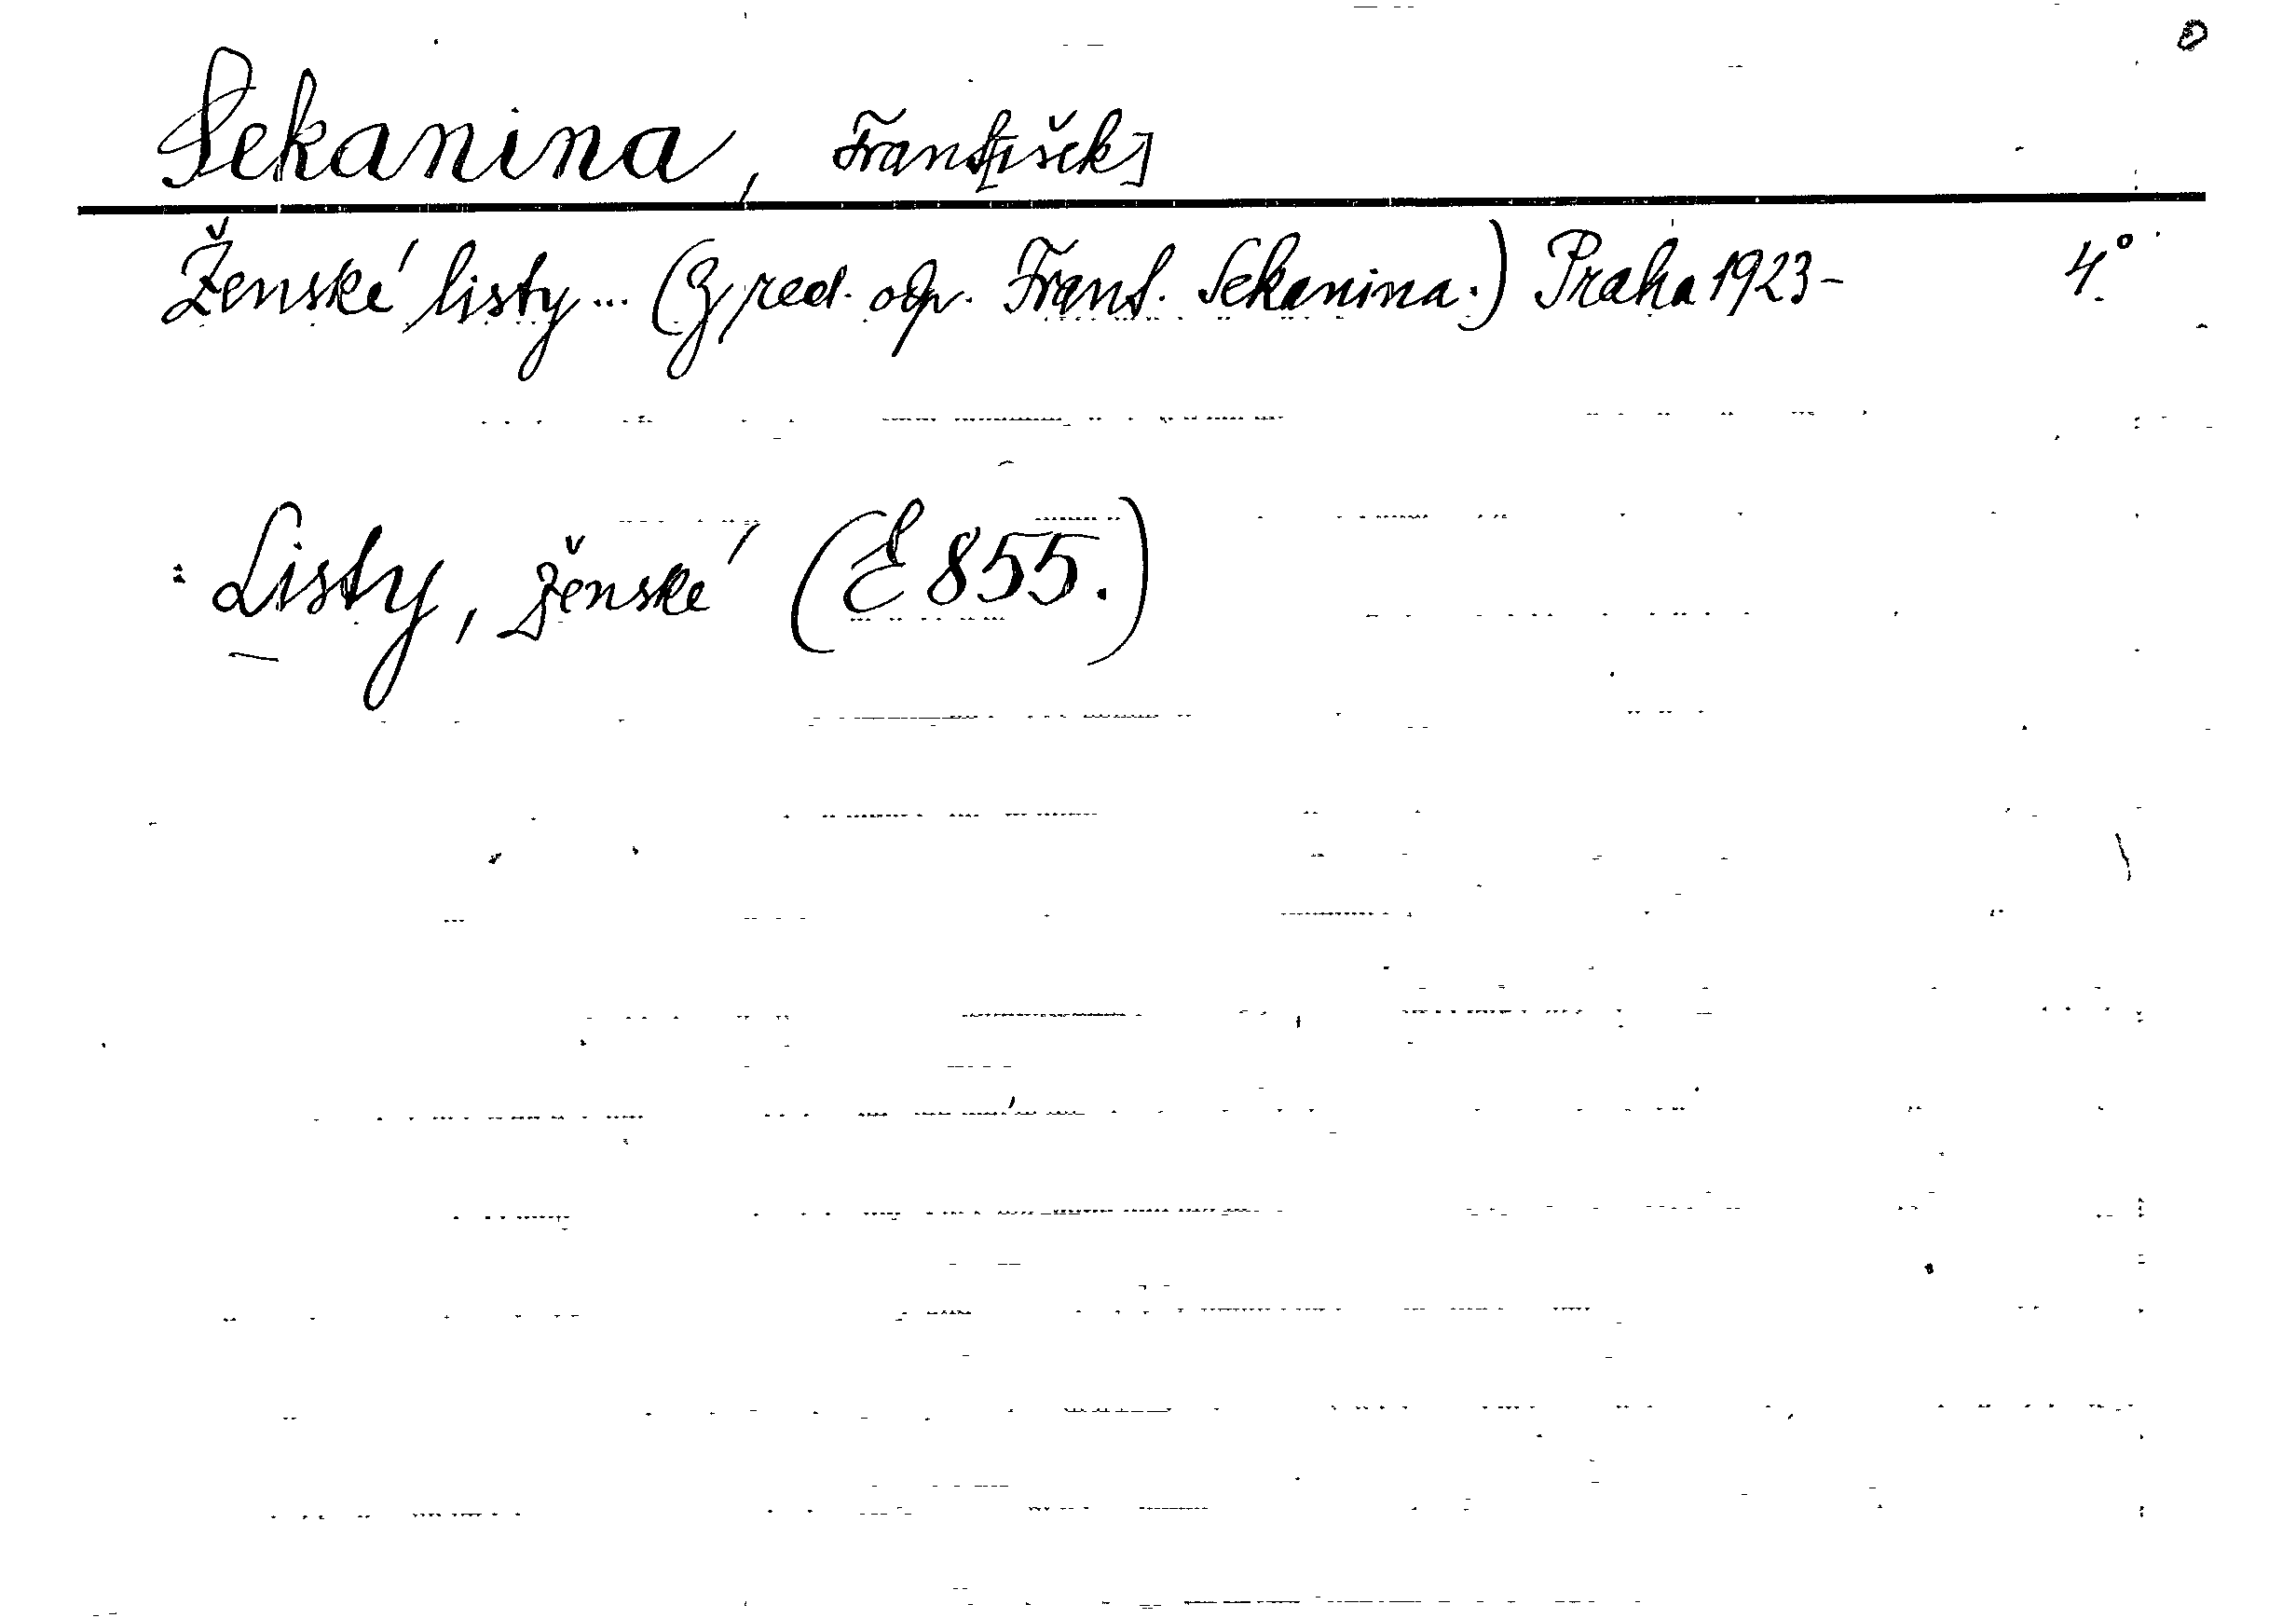 Sekanina, Frant[išek]
Ženské listy... (Z red. odp. Frant. Sekanina.) Praha 1923- 4°.
: Listy, ženské (E 855.)